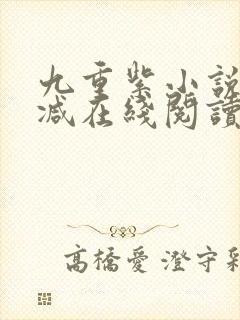 九重紫小說
减在綫閱讀
高橋愛 澄守彩